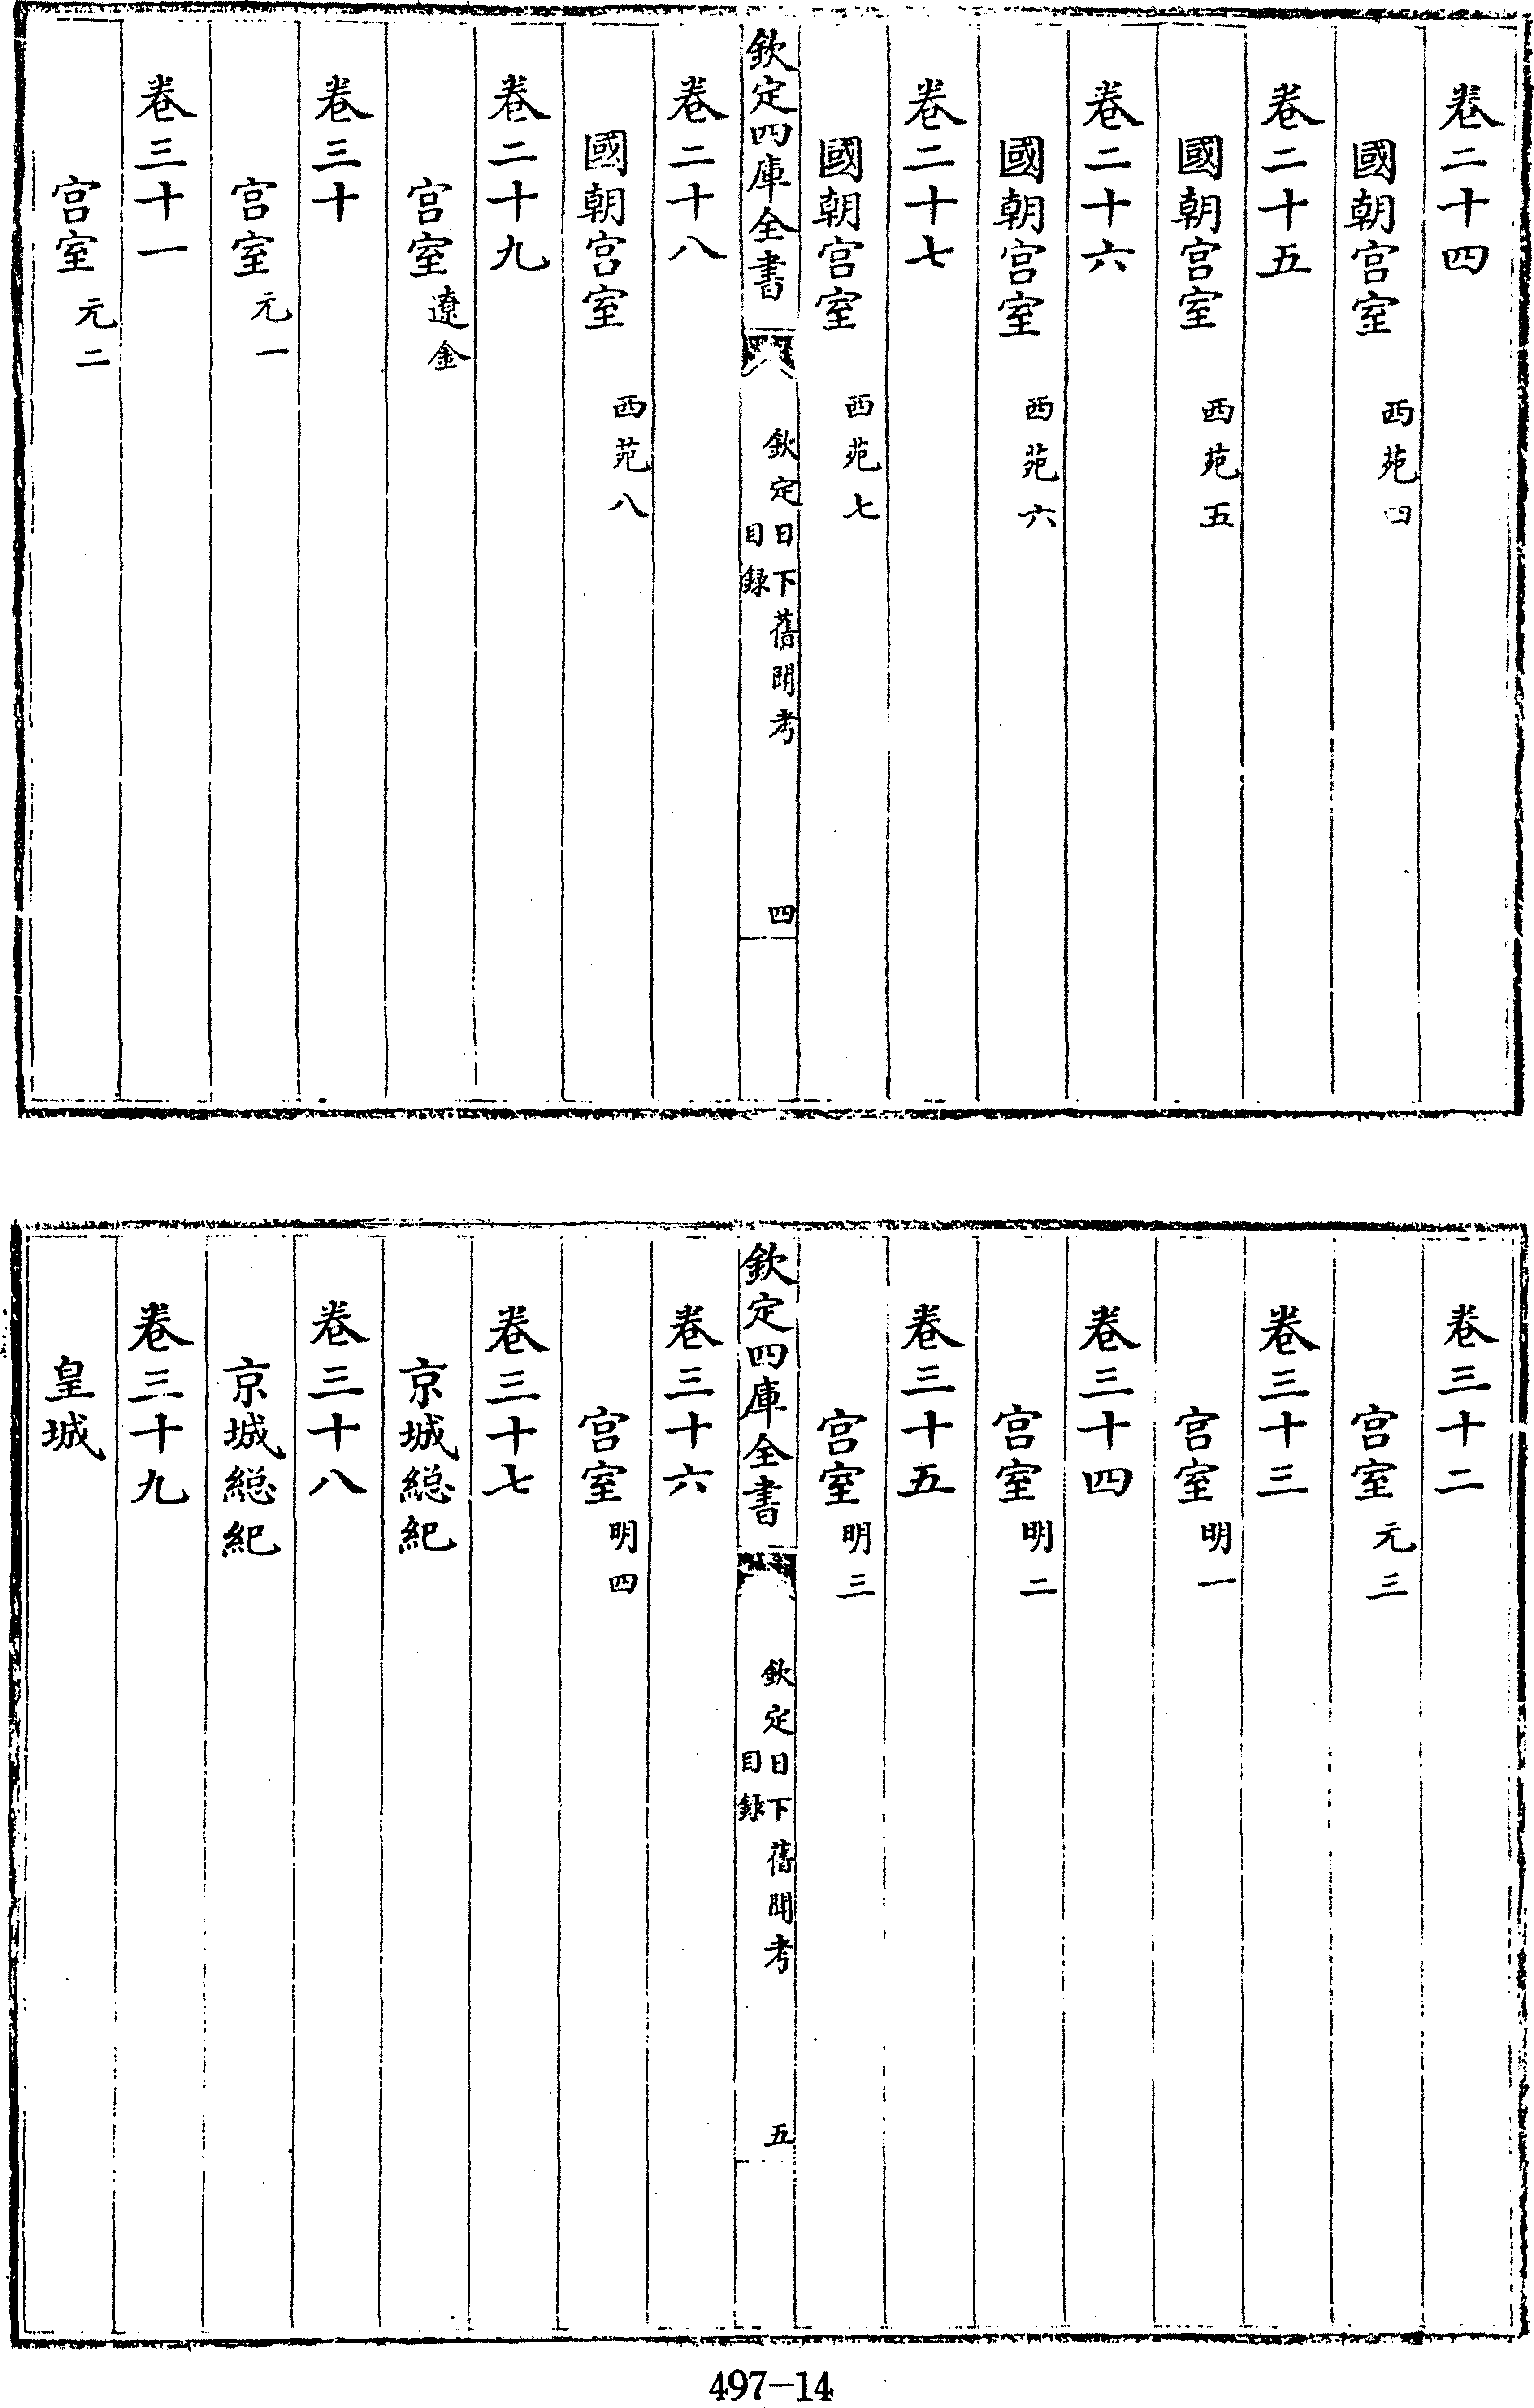 卷二十四
國朝宫室 西苑四
卷二十五
國朝宫室 西苑五
卷二十六
國朝宫室 西苑六
卷二十七
國朝宫室 西苑七
欽定四庫全書 欽定日下舊聞考 目録 四
卷二十八
國朝宫室 西苑八
卷二十九
宫室 遼金
卷三十
宫室 元一
卷三十一
宫室 元二
卷三十二
宫室 元三
卷三十三
宫室 明一
卷三十四
宫室 明二
卷三十五
宫室 明三
欽定四庫全書 欽定日下舊聞考 目録 五
卷三十六
宫室 明四
卷三十七
京城總紀
卷三十八
京城總紀
卷三十九
皇城
497-14